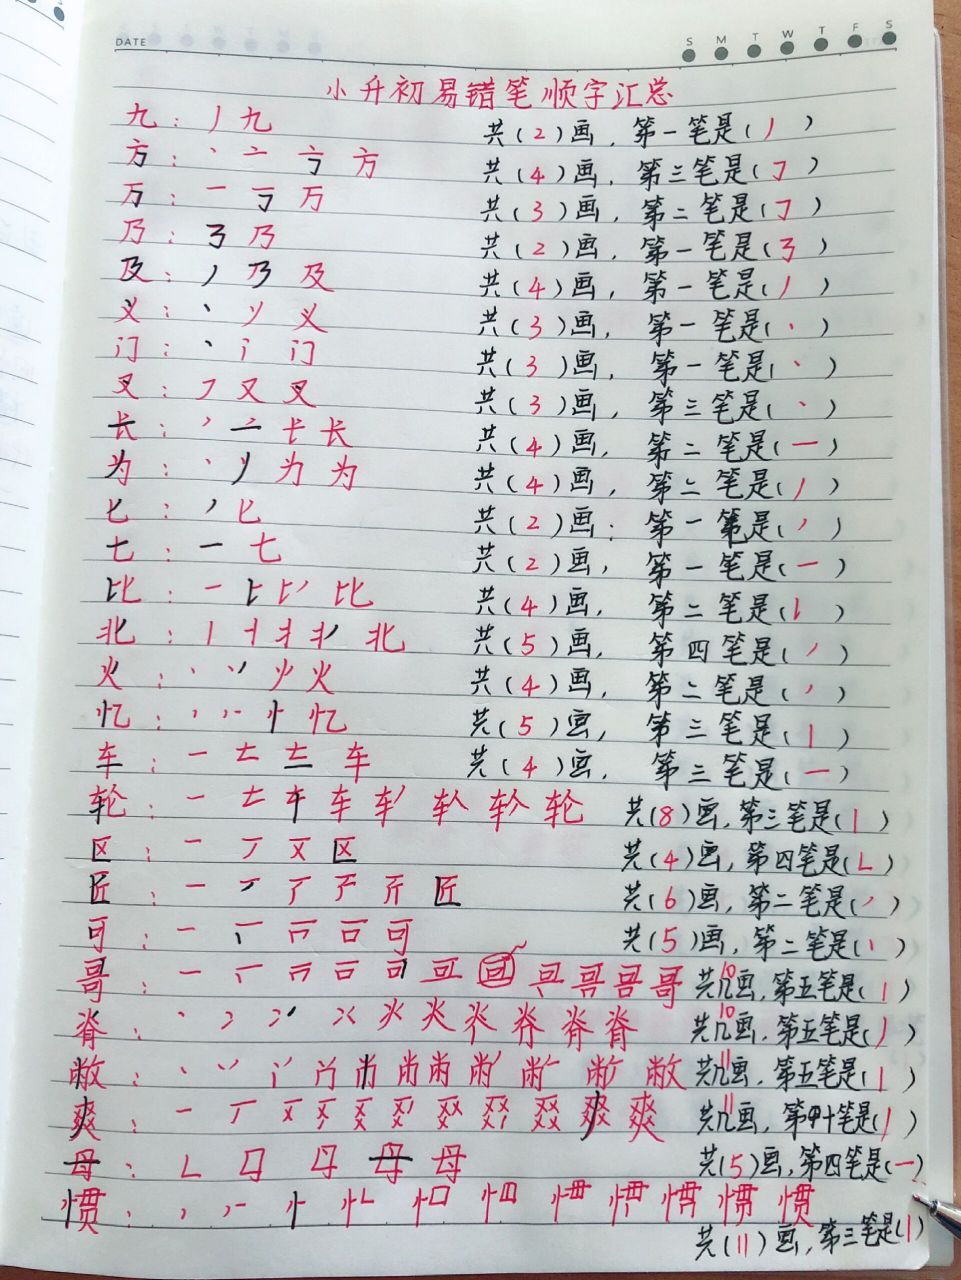 DATE
S M T W T F S
小升初易错笔顺字汇总
九：丿 九 共(2)画，第一笔是(丿)
方：丶 亠 方 共(4)画，第三笔是(𠃌)
万：一 万 共(3)画，第二笔是(𠃌)
乃：𠄎 乃 共(2)画，第一笔是(𠄎)
及：丿 乃 及 共(4)画，第一笔是(丿)
义：丶 义 共(3)画，第一笔是(丶)
门：丶 门 共(3)画，第一笔是(丶)
叉：㇇ 又 叉 共(3)画，第三笔是(丶)
长：丿 长 共(4)画，第二笔是(一)
为：丶 为 共(4)画，第二笔是(丿)
匕：丿 匕 共(2)画：第一笔是(丿)
七：一 七 共(2)画，第一笔是(一)
比：一 比 共(4)画，第二笔是(㇙)
北：丨 北 共(5)画，第四笔是(丿)
火：丶 丷 火 共(4)画，第二笔是(丿)
忆：丶 忄 忆 共(5)画，第三笔是(丨)
车：一 车 共(4)画，第三笔是(一)
轮：一 车 轮 共(8)画，第三笔是(丨)
区：一 㐅 区 共(4)画，第四笔是(㇗)
匠：一 匠 共(6)画，第二笔是(丿)
可：一 可 共(5)画，第二笔是(丨)
哥：一 可 哥 哥 共10画，第五笔是(丨)
脊：丶 脊 共10画，第五笔是(丿)
敝：丶 丷 敝 共11画，第五笔是(丨)
爽：一 爽 共11画，第十笔是(丿)
母：㇗ 母 共(5)画，第四笔是(一)
惯：丶 忄 惯
共(11)画，第三笔是(丨)